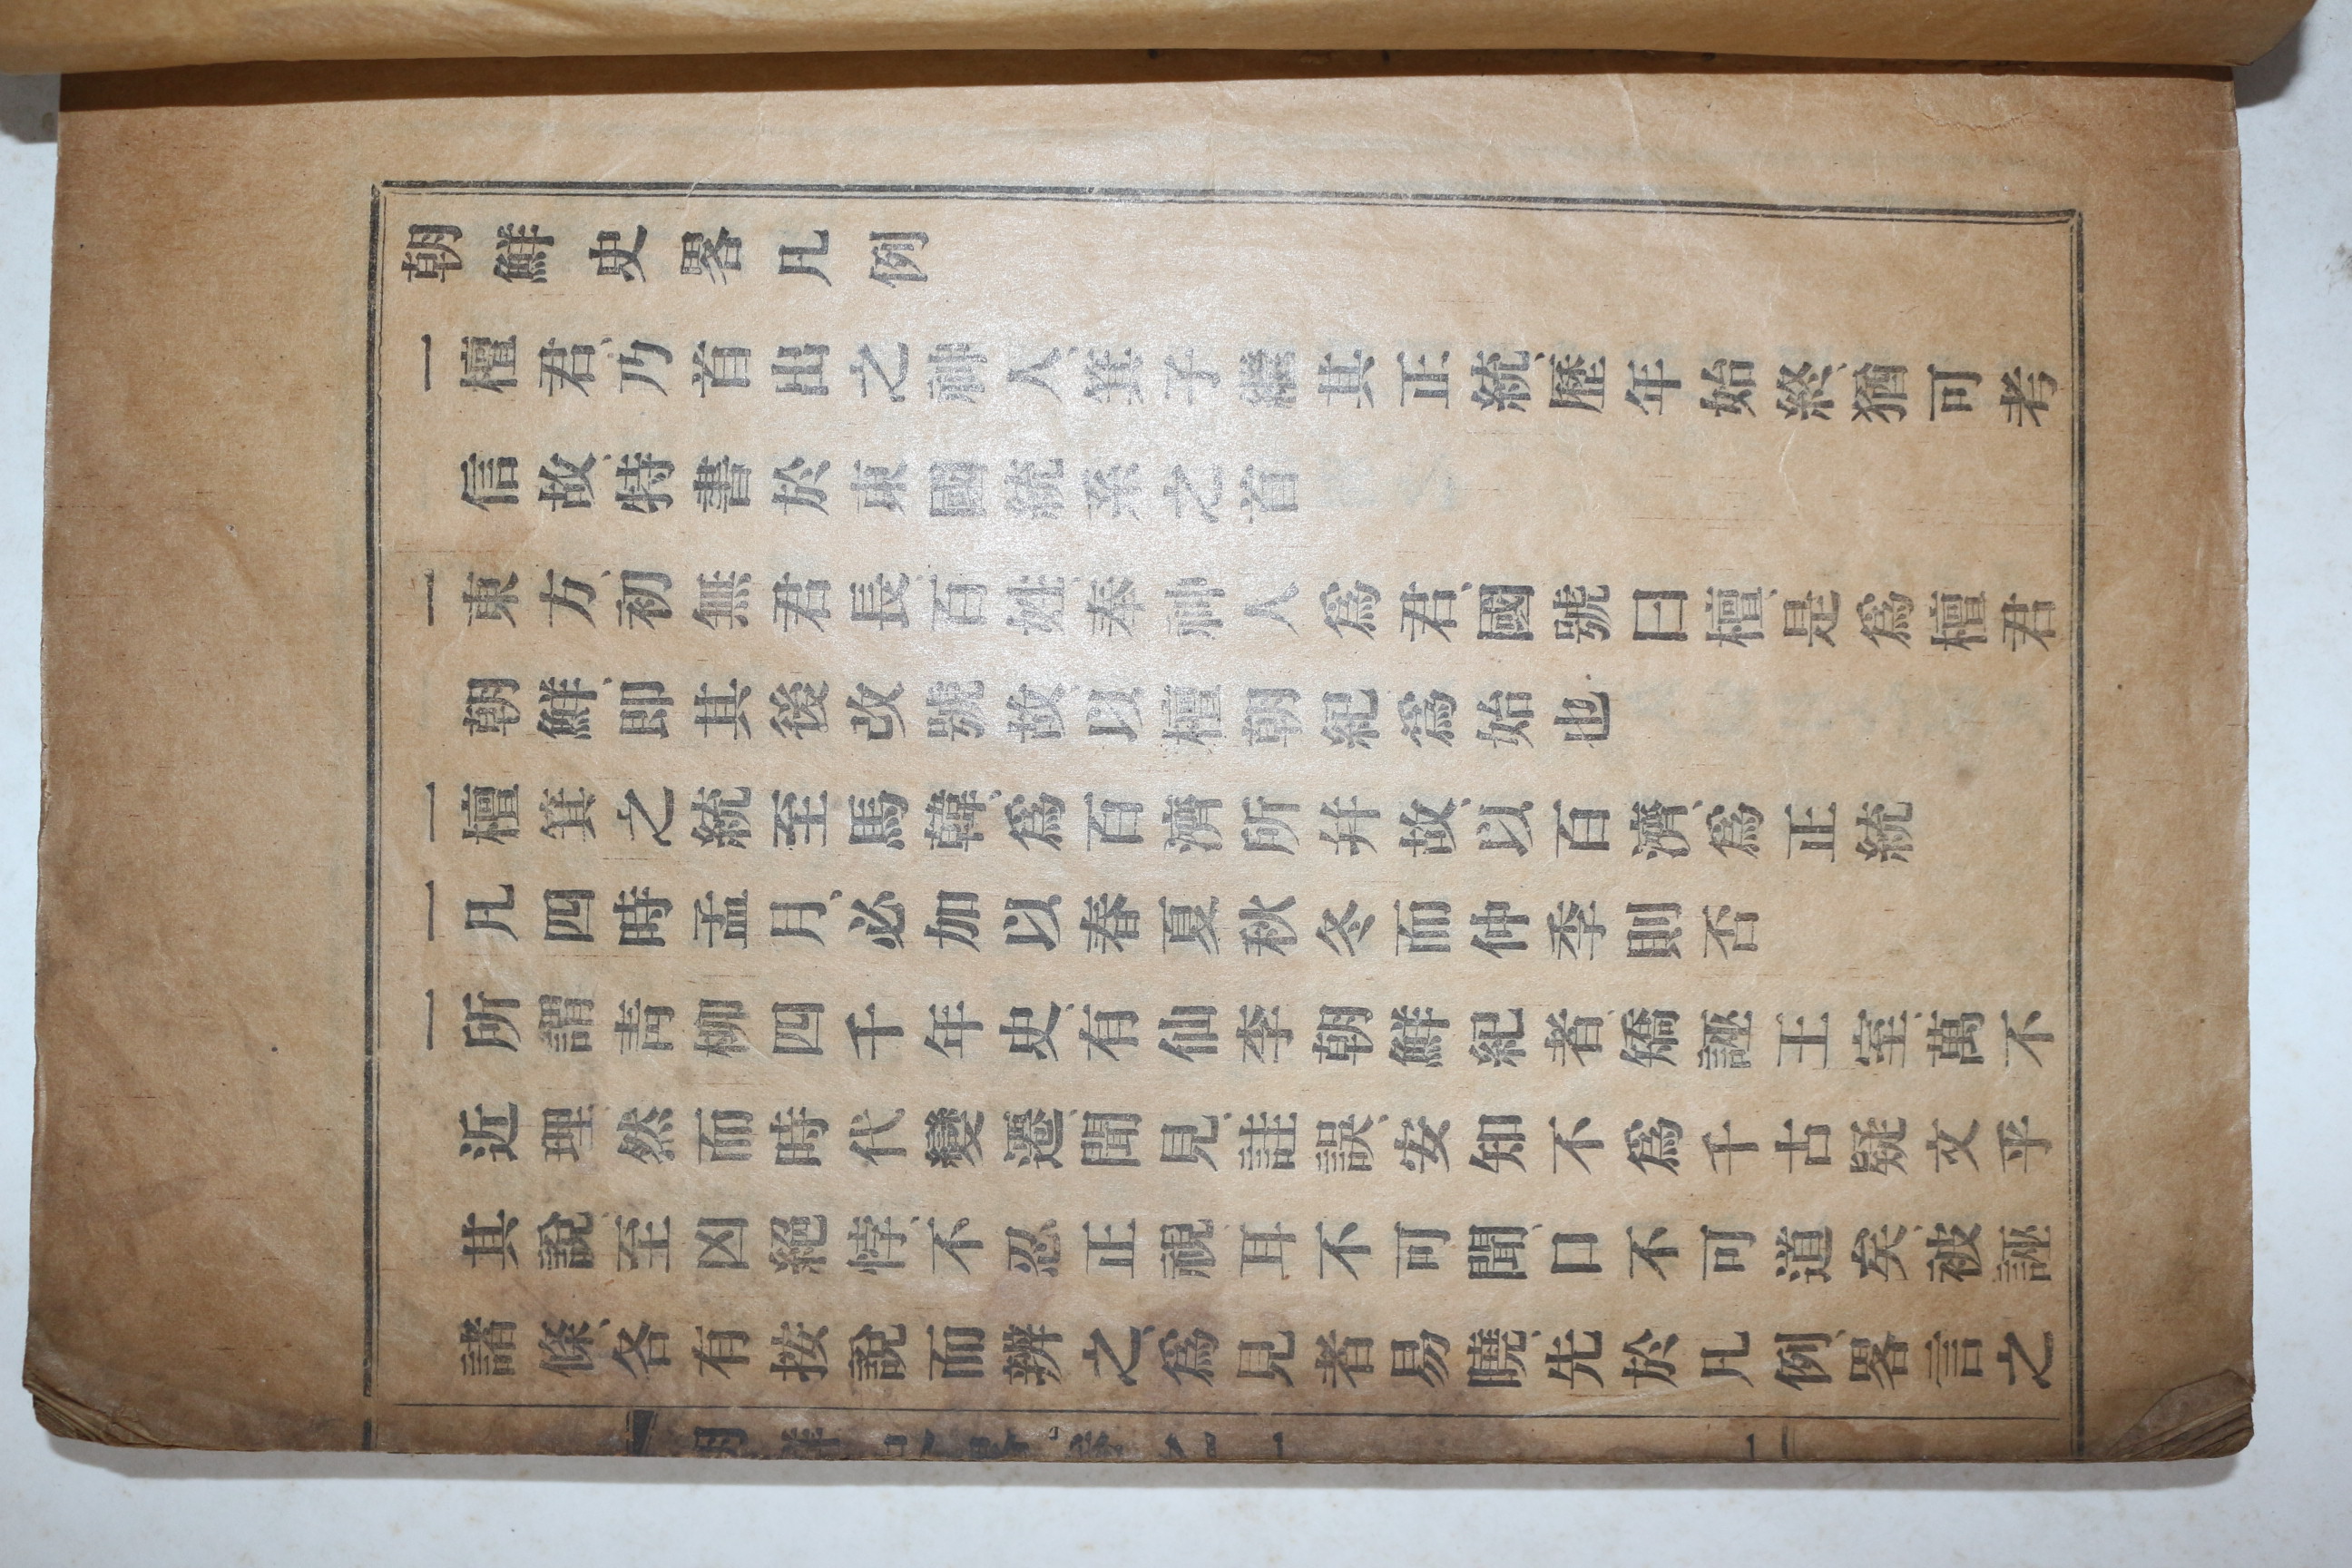 朝鮮史畧凡例
一檀君乃首出之神人箕子繼其正統歷年始終猶可考
信故特書於東國統系之首
一東方初無君長百姓奉神人爲君國號曰檀是爲檀君
朝鮮卽其後改號故以檀朝紀爲始也
一檀箕之統至馬韓爲百濟所幷故以百濟爲正統
一凡四時孟月必加以春夏秋冬而仲季則否
一所謂靑柳四千年史有仙李朝鮮紀者矯誣王室萬不
近理然而時代變遷聞見詿誤安知不爲千古疑文乎
其說至凶絕悖不忍正視耳不可聞口不可道矣被誣
諸條各有按說而辨之爲見者易曉先於凡例畧言之